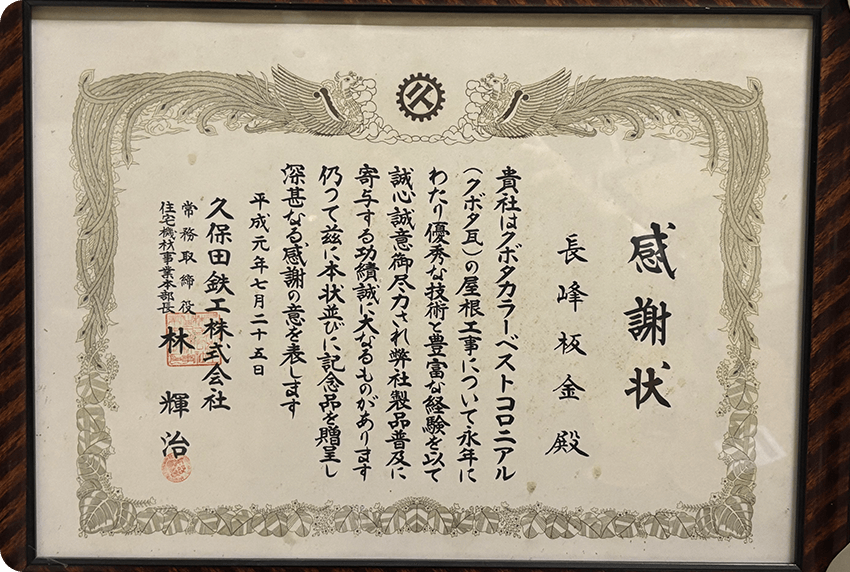 久
感謝状
長峰板金殿
貴社はクボタカラーベストコロニアル
(クボタ瓦)の屋根工事について永年に
わたり優秀な技術と豊富な経験を以て
誠心誠意御尽力され弊社製品普及に
寄与する功績誠に大なるものがあります
仍つて茲に本状並びに記念品を贈呈し
深甚なる感謝の意を表します
平成元年七月二十五日
久保田鉄工株式会社
常務取締役
住宅機材事業本部長
林輝治